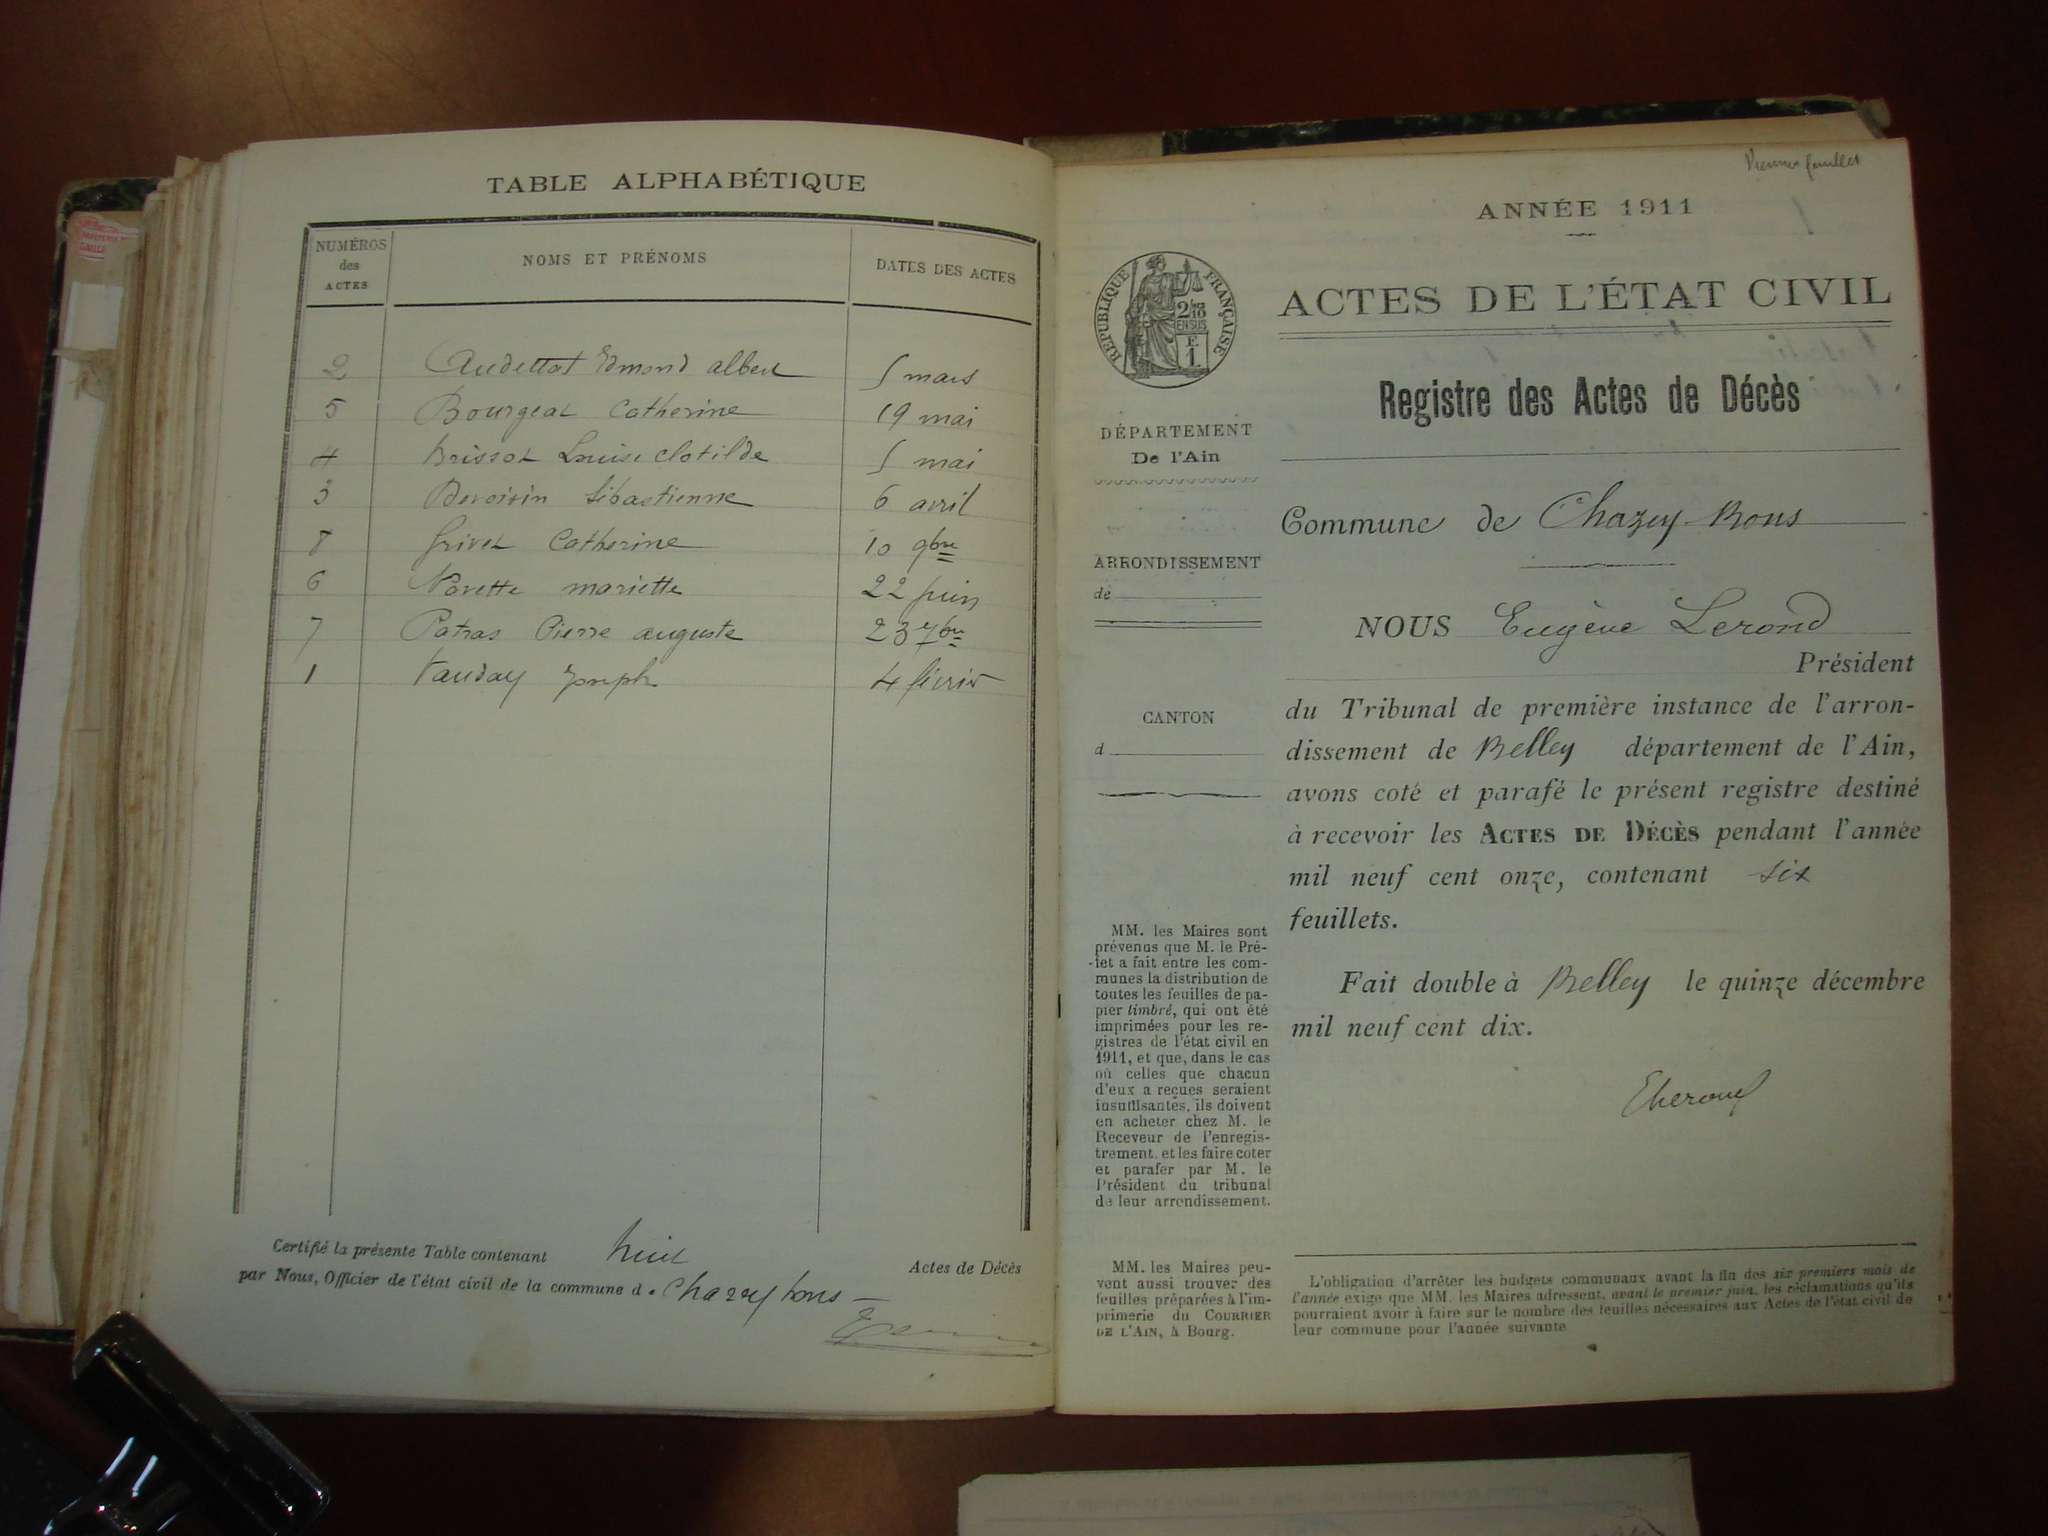 TABLE ALPHABÉTIQUE
NUMÉROS des ACTES
NOMS ET PRÉNOMS
DATES DES ACTES
2 Audettat Edmond Albert 5 mars
5 Bourgeat Catherine 19 mai
4 Brissot Louise Clotilde 5 mai
3 Devoisin Sébastienne 6 avril
8 Grivet Catherine 10 9bre
6 mariette 22 juin
7 Patras Pierre auguste 23 7bre
1 Vauday Joseph 4 février
Certifié la présente Table contenant huit Actes de Décès
par Nous, Officier de l'état civil de la commune d. Chazey bons
Premier feuillet
ANNÉE 1911
RÉPUBLIQUE FRANÇAISE
2/10
EN SUS
F.
1.
ACTES DE L'ÉTAT CIVIL
Registre des Actes de Décès
DÉPARTEMENT
De l'Ain
ARRONDISSEMENT
de
CANTON
d
Commune de Chazey-Bons
NOUS Eugène Lerond
Président
du Tribunal de première instance de l'arron-
dissement de Belley département de l'Ain,
avons coté et parafé le présent registre destiné
à recevoir les ACTES DE DÉCÈS pendant l'année
mil neuf cent onze, contenant six
feuillets.
Fait double à Belley le quinze décembre
mil neuf cent dix.
MM. les Maires sont
prévenus que M. le Pré-
fet a fait entre les com-
munes la distribution de
toutes les feuilles de pa-
pier timbré, qui ont été
imprimées pour les re-
gistres de l'état civil en
1911, et que, dans le cas
où celles que chacun
d'eux a reçues seraient
insuffisantes, ils doivent
en acheter chez M. le
Receveur de l'enregis-
trement, et les faire coter
et parafer par M. le
Président du tribunal
de leur arrondissement.
MM. les Maires peu-
vent aussi trouver des
feuilles préparées à l'im-
primerie du COURRIER
DE L'AIN, à Bourg.
L'obligation d'arrêter les budgets communaux avant la fin des six premiers mois de
l'année exige que MM. les Maires adressent, avant le premier juin, les réclamations qu'ils
pourraient avoir à faire sur le nombre des feuilles nécessaires aux Actes de l'état civil de
leur commune pour l'année suivante